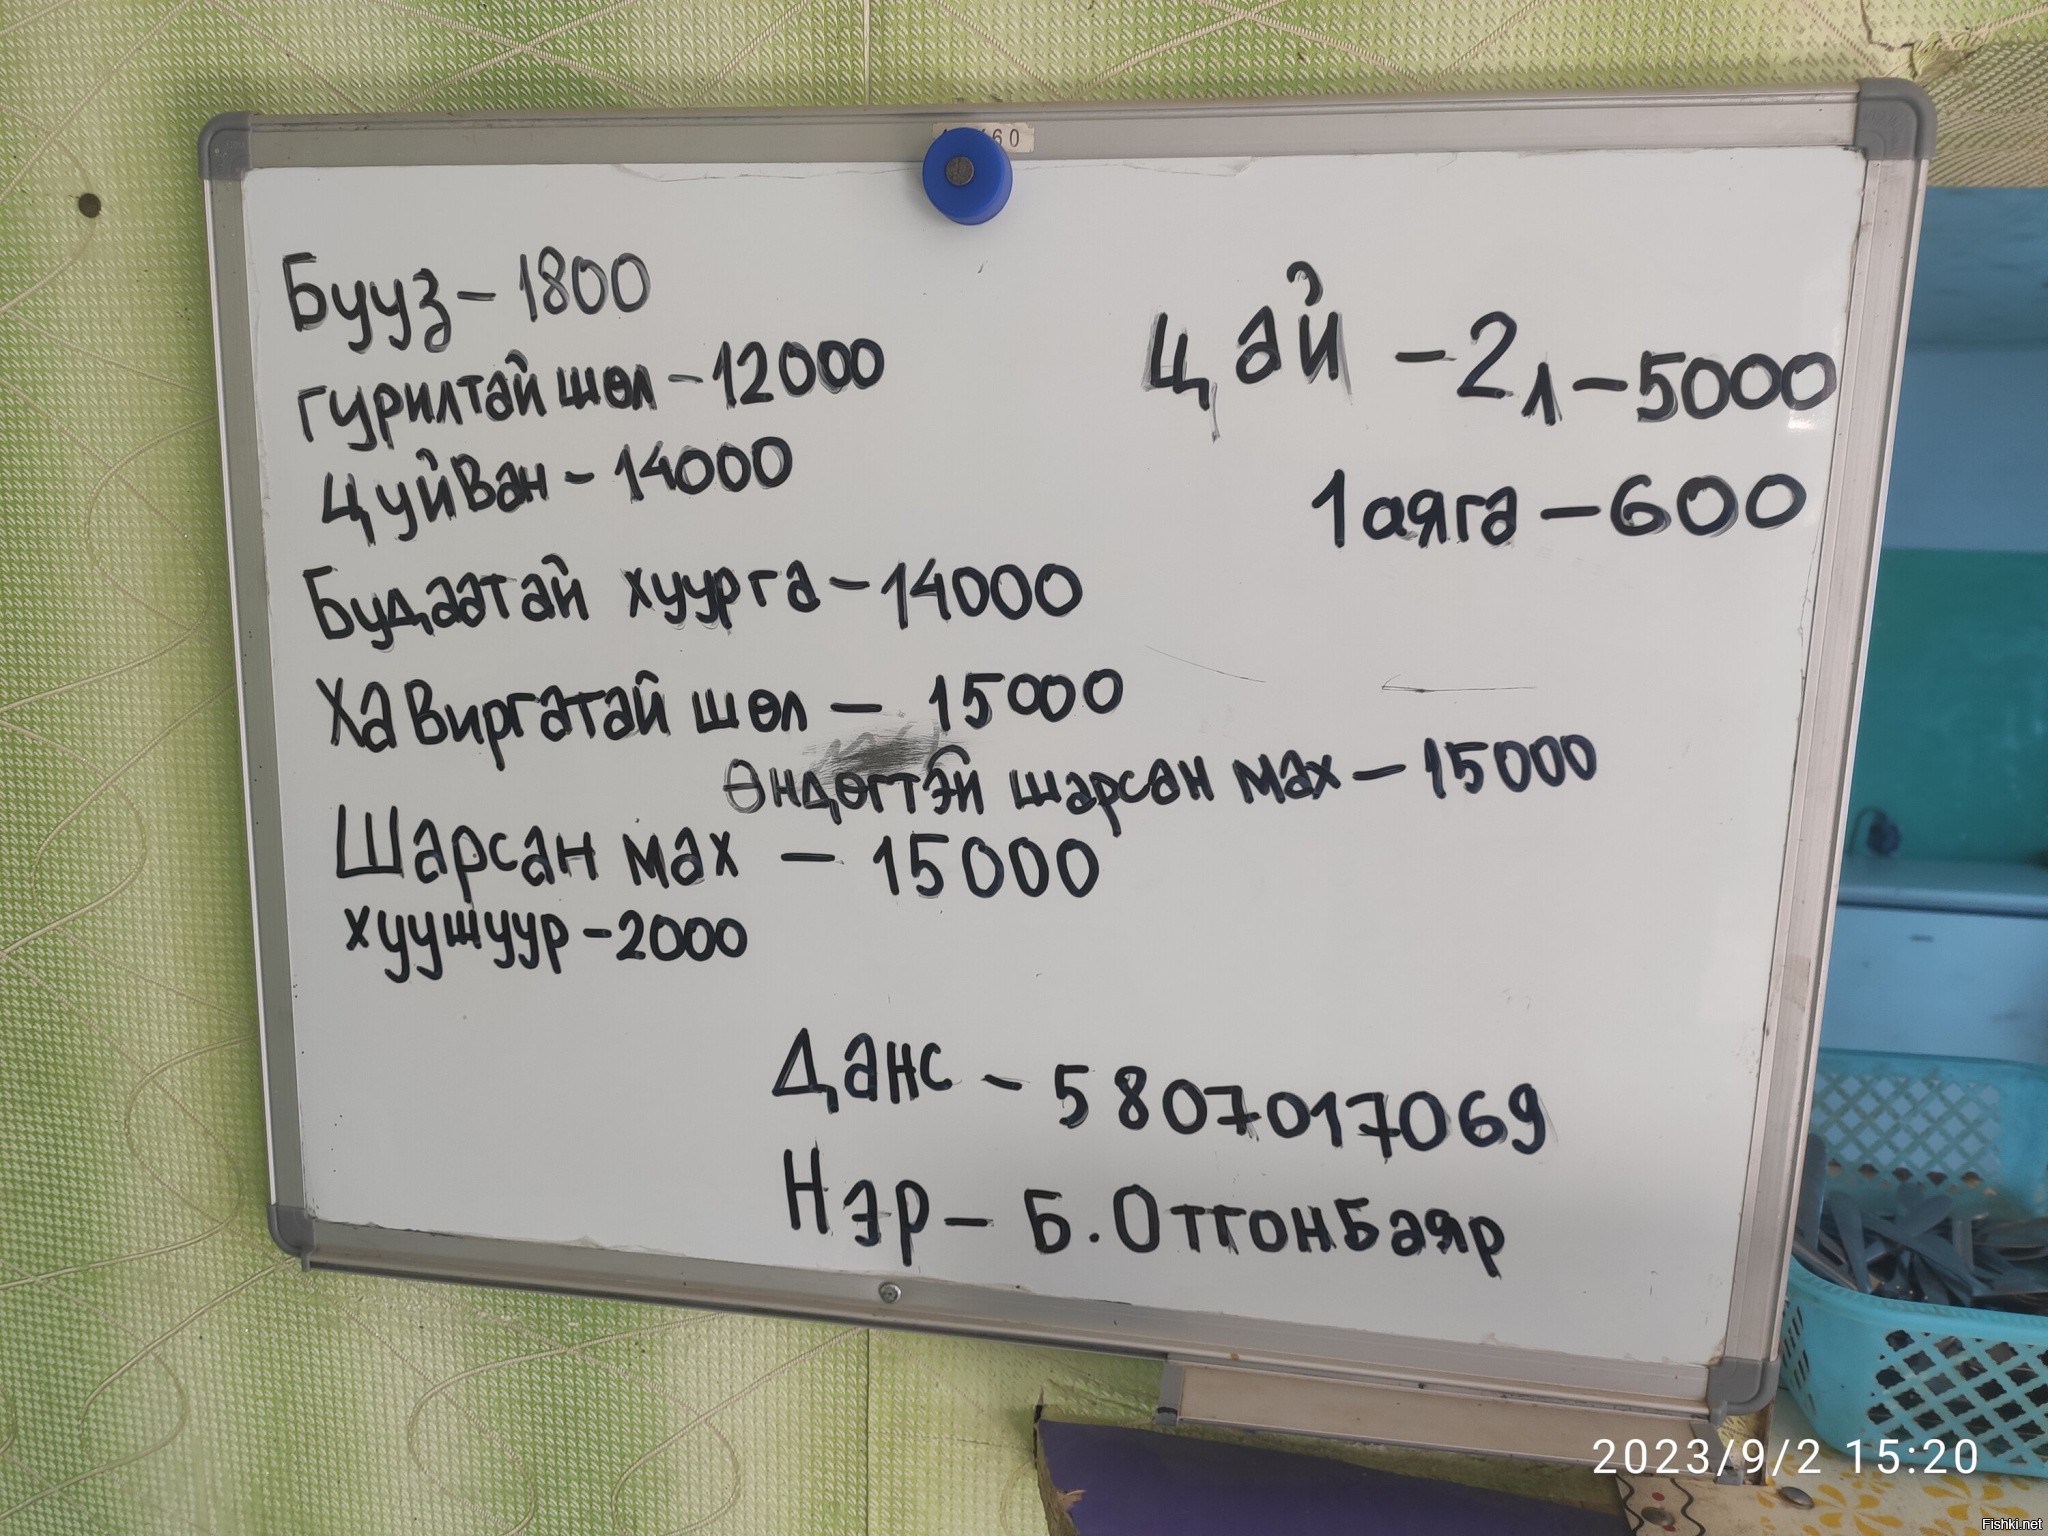 Бууз - 1800
гурилтай шөл - 12000
Цуйван - 14000
Будаатай хуурга - 14000
Хавиргатай шөл - 15000
Өндөгтэй шарсан мах - 15000
Шарсан мах - 15000
хуушуур - 2000
Цай - 2л - 5000
1 аяга - 600
Данс - 5807017069
Нэр - Б. Отгонбаяр
2023/9/2 15:20
Fishki.net